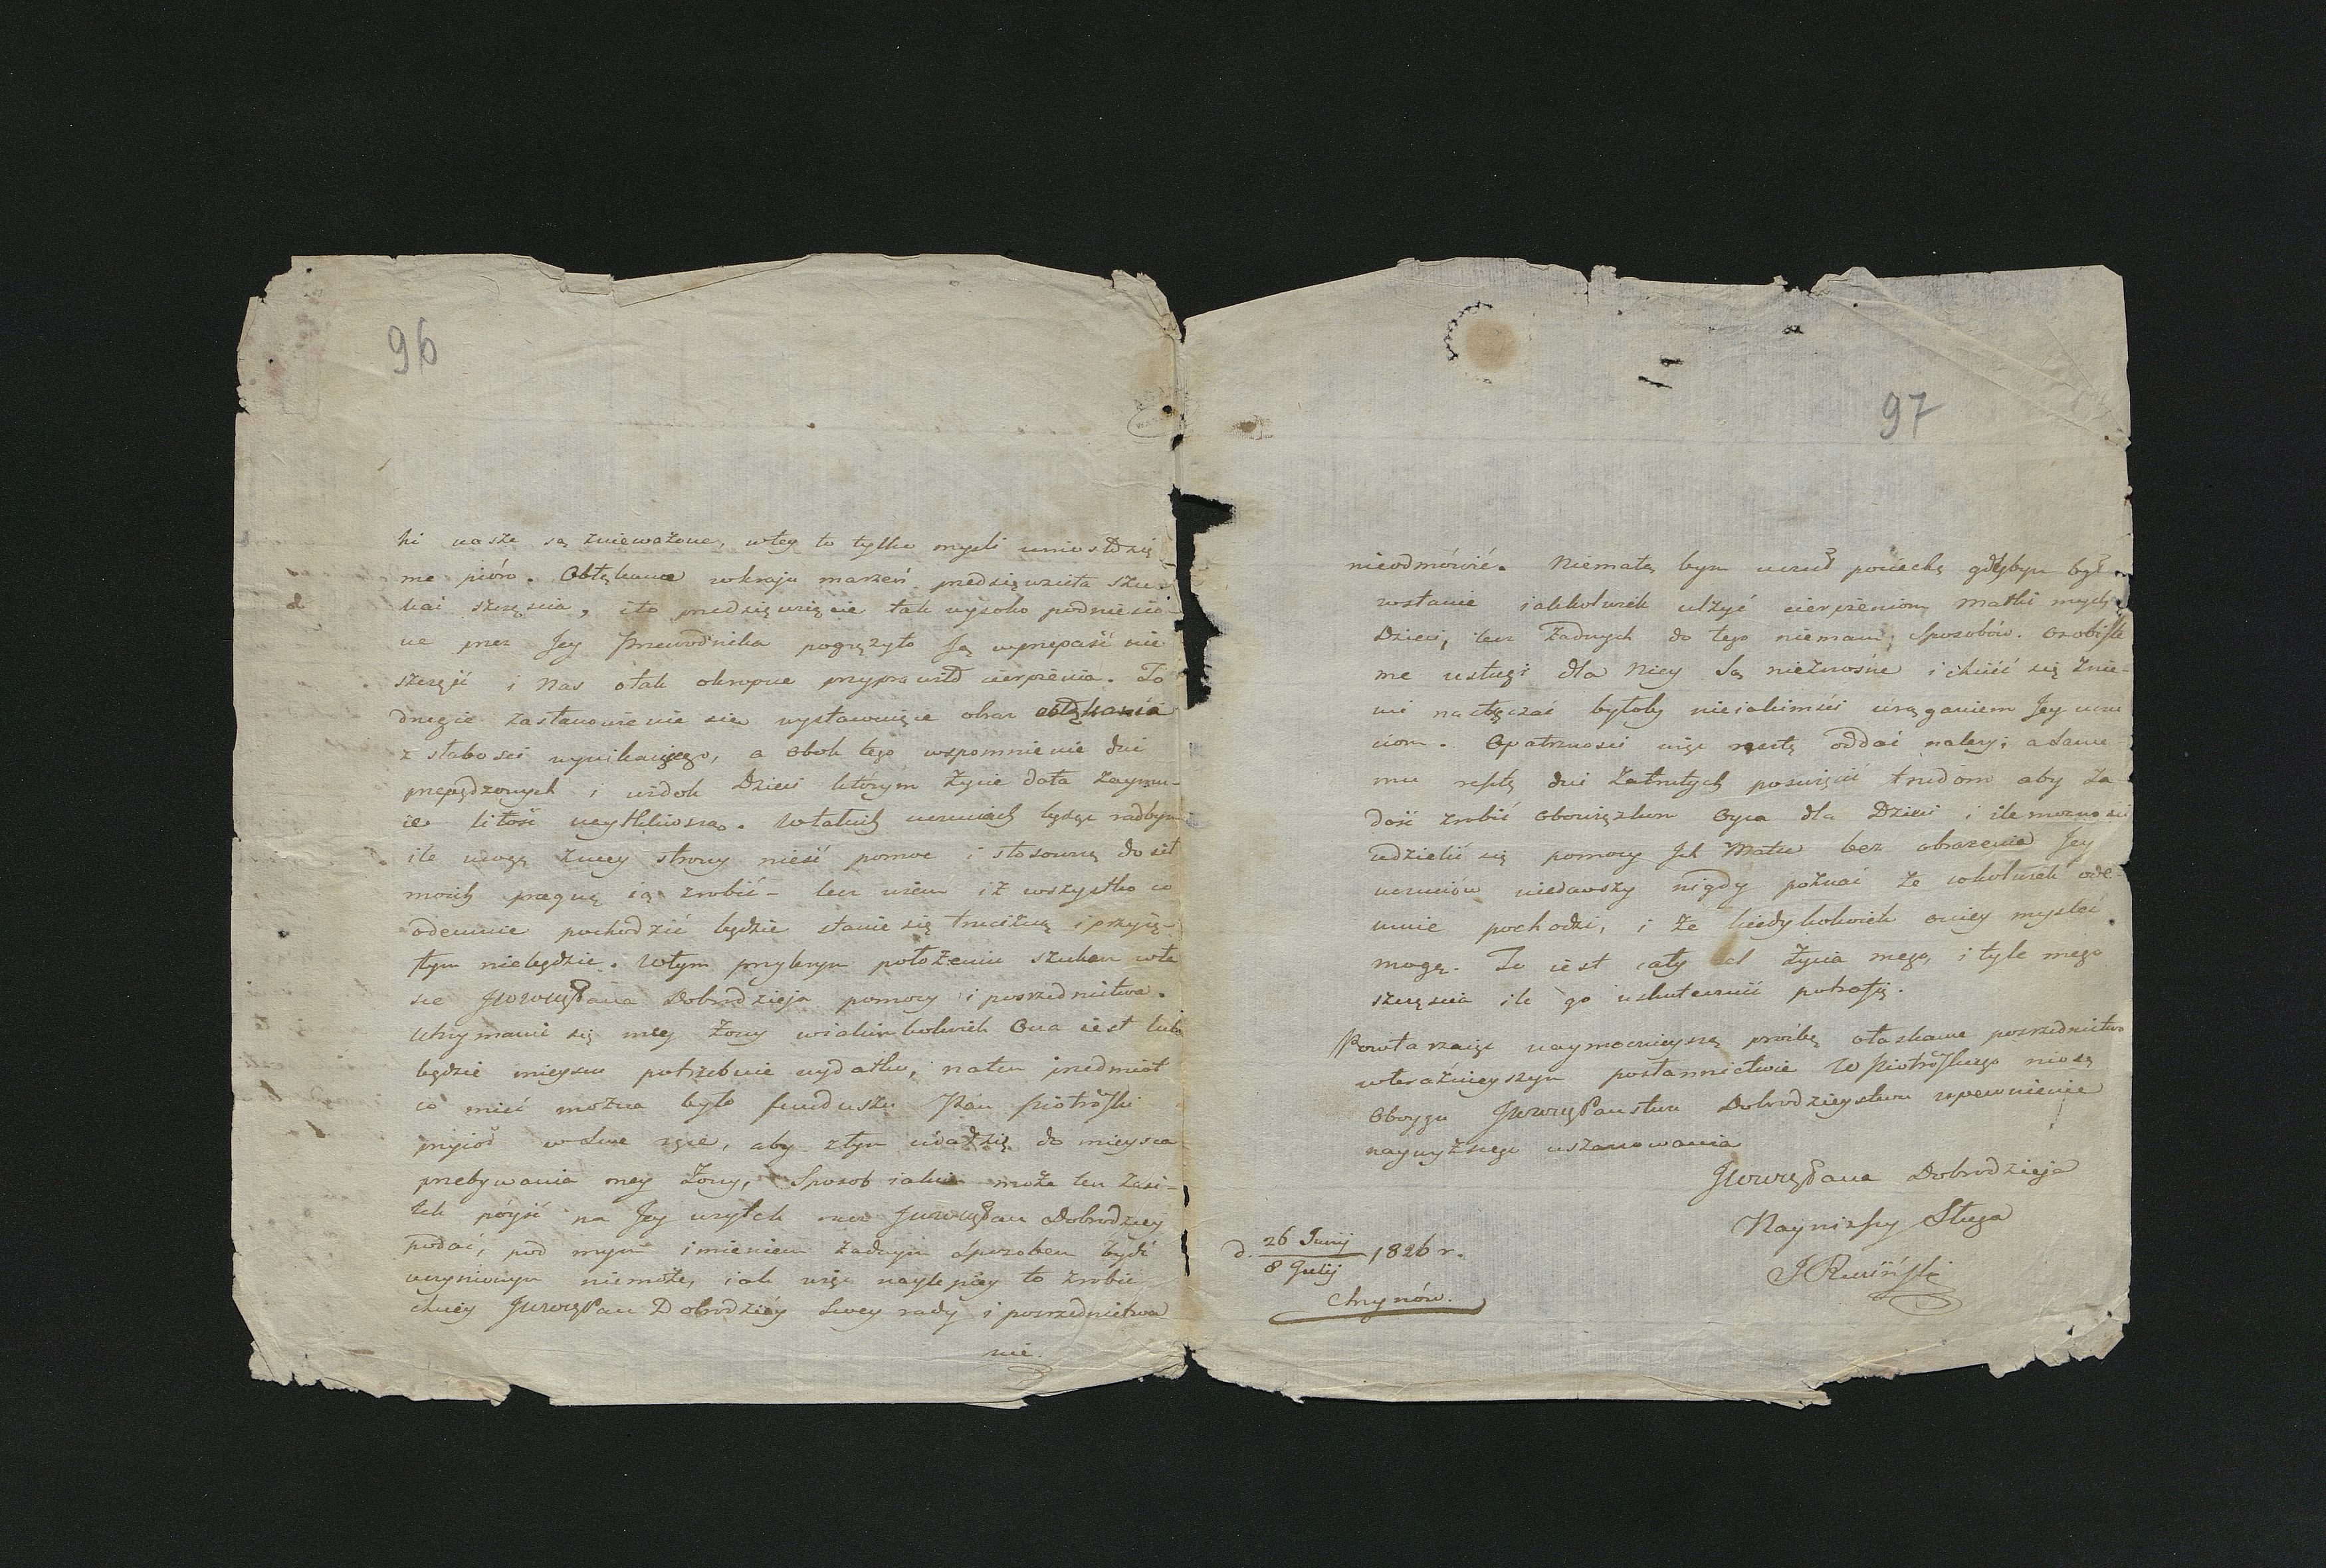 96
ki nasze są znieważone, wtey to tylko mysli unioسł się
me pióro. Obłąkana wkraju marzeń przedsięwzieła szu-
kać szczęścia, i to przedsięwzięcie tak wysoko podniesio-
ne przez Jey Przewodnika pogrążyło Ją wprzepaść nie
szczęść i Nas o tak okropne przyprawiło cierpienia. To
drugie zastanowienie się wystawuiąc obraz obłąkania
z słabości wynikaiącego, a obok tego wspomnienie dni
przepędzonych i widok Dzieci którym życie dała zaymu-
ie litość
Wtakich uczuciach będąc radbym
ile mogę zmey strony nieść pomoc i stosowną do sił
moich pragnę ią zrobić - lecz wiem iż wszystko co
odemnie pochodzić będzie stanie się trucizną i przyię-
tym niebędzie. Wtym przykrym położeniu szukam wła
sce JWWgoPana Dobrodzieja pomocy i posrzednictwa.
Utrzymanie się mey Żony wiakimkolwiek Ona iest lub
będzie mieyscu potrzebuie wydatku, naten przedmiot
co mieć można było funduszu Pan Piotrowski
przyioł wswe ręce, aby ztym udał się do mieysca
przebywania mey Żony, Sposob iakim może ten zasi-
łek póyść na Jey użytek racz JWWgPan Dobrodziey
podać, pod mym imieniem żadnym sposobem bydź
uczynionym niemoże, iak więc naylepiey to zrobić
chciey JWWgPan Dobrodziey Swey rady i posrzednictwa
nie.
97
nieodmówić. Niemałą bym uczuł pociechę gdybym był
wstanie iakkolwiek ulżyć cierpieniom Matki mych
Dzieci, lecz żadnych do tego niemam Sposobów. Osobiste
me usługi dla Niey Są nieznośne i chcieć się znie-
mi nastręczać byłoby nieiakimści urąganiem Jey uczu
ciom. Opatrzności więc resztę oddać należy; a same-
mu resztę dni zatrutych poswięcić trudom aby za
dość zrobić obowiązkom Oyca dla Dzieci i ile możności
udzielić się pomocy Ich Matce bez obrażenia Jey
uczuciów niedawszy nigdy poznać że cokolwiek ode-
mnie pochodzi, i że kiedykolwiek oniey mysleć
mogę. To iest cały cel życia mego, i tyle mego
szczęscia ile go uskutecznić potrafię.
Powtarzaiąc naymocnieyszą prośbę ołaskawe posrzednictwo
wteraźnieyszym posłannictwie WPiotrowskiego niosę
Oboyga JWWgPaństwu Dobrodzieystwu upewnienie
naywyższego uszanowania
JWWgPana Dobrodzieja
Nayniższy Sługa
d. 26 Junij / 8 Julij 1826 r.
Chrynów.